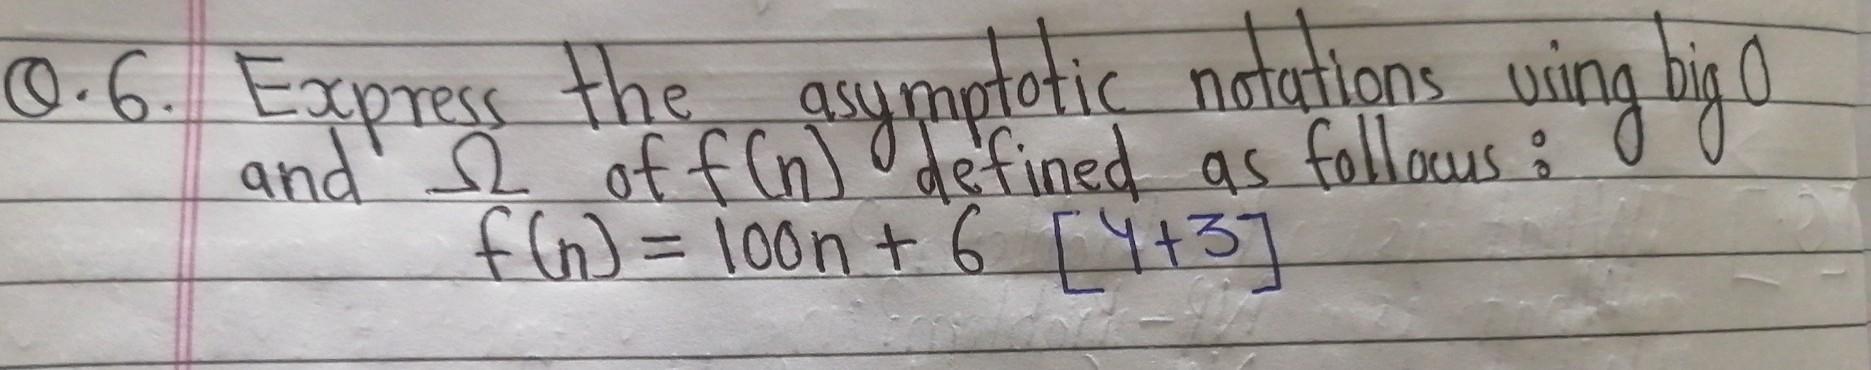 Q.6. Express the asymptotic notations using big O
and Ω of f(n) defined as follows:
f(n) = 100n + 6 [4+3]